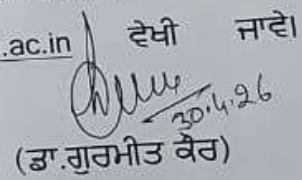 .ac.in ਵੇਖੀ ਜਾਵੇ।
30.4.26
(ਡਾ.ਗੁਰਮੀਤ ਕੈਰ)